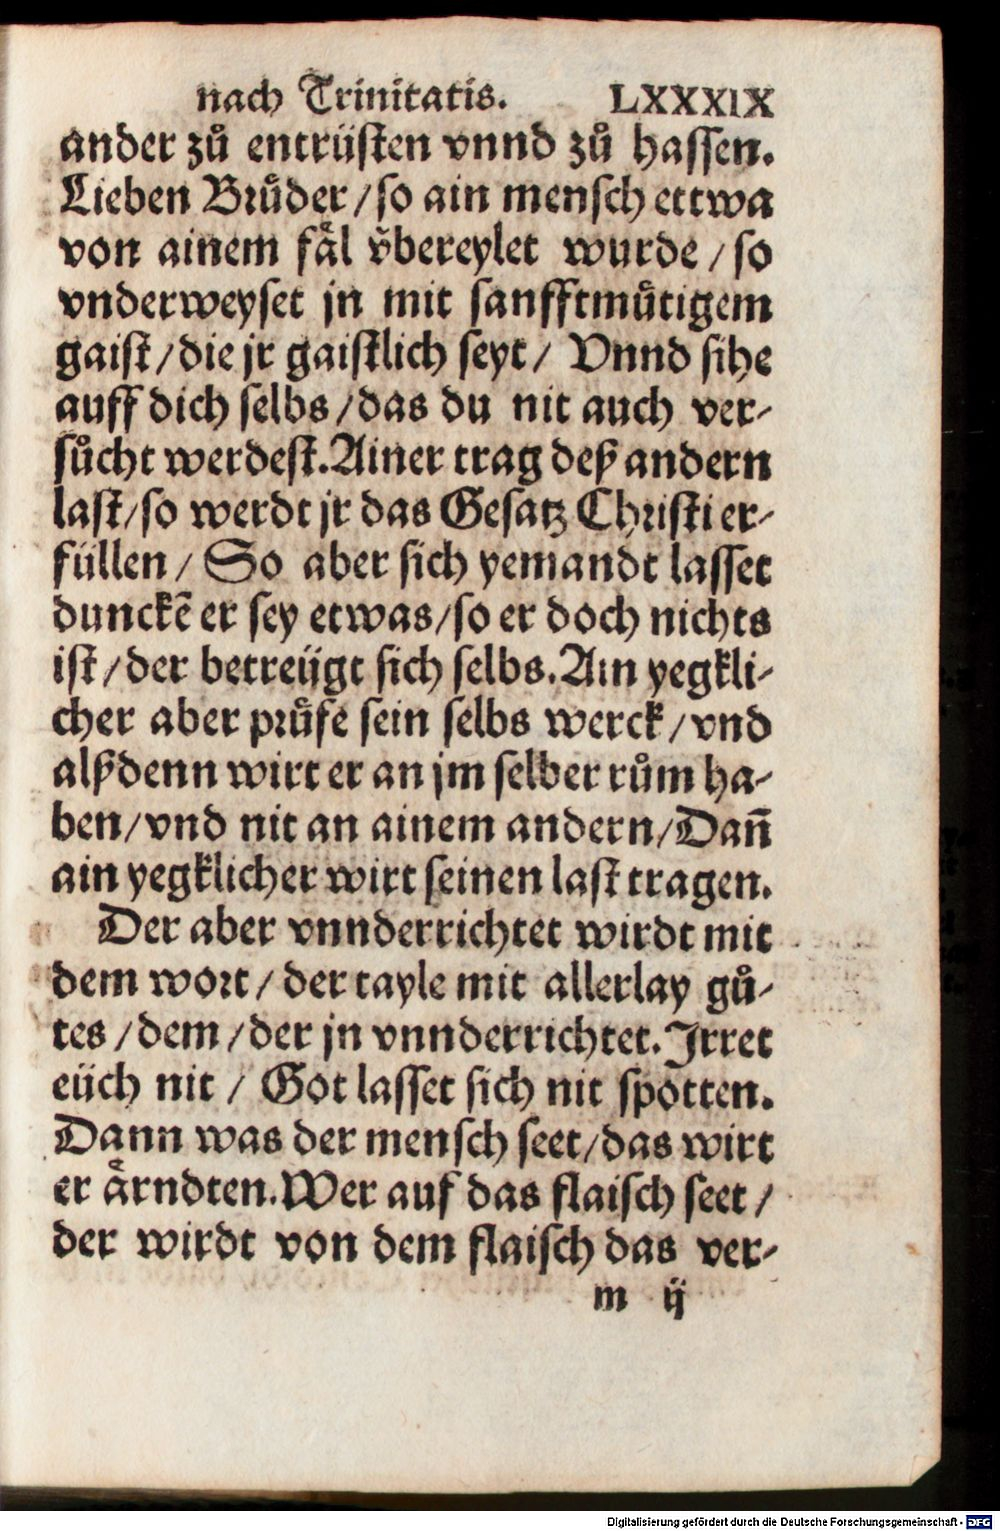 nach Trinitatis. LXXXIX
ander zů entrüſten vnnd zů haſſen.
Lieben Brůder / ſo ain menſch ettwa
von ainem faͤl v̆bereylet wurde / ſo
vnderweyſet jn mit ſanfftmůtigem
gaiſt / die jr gaiſtlich ſeyt / Vnnd ſihe
auff dich ſelbs / das du nit auch ver⸗
ſůcht werdeſt. Ainer trag deß andern
laſt / ſo werdt jr das Geſatz Chriſti er⸗
füllen / So aber ſich yemandt laſſet
dunckē er ſey etwas / ſo er doch nichts
iſt / der betreügt ſich ſelbs. Ain yegkli⸗
cher aber průfe ſein ſelbs werck / vnd
alßdenn wirt er an jm ſelber rům ha⸗
ben / vnd nit an ainem andern / Dañ
ain yegklicher wirt ſeinen laſt tragen.
Der aber vnnderrichtet wirdt mit
dem wort / der tayle mit allerlay gů⸗
tes / dem / der jn vnnderrichtet. Irret
eüch nit / Got laſſet ſich nit ſpotten.
Dann was der menſch ſeet / das wirt
er aͤrndten. Wer auf das flaiſch ſeet /
der wirdt von dem flaiſch das ver⸗
m ij
Digitalisierung gefördert durch die Deutsche Forschungsgemeinschaft - DFG